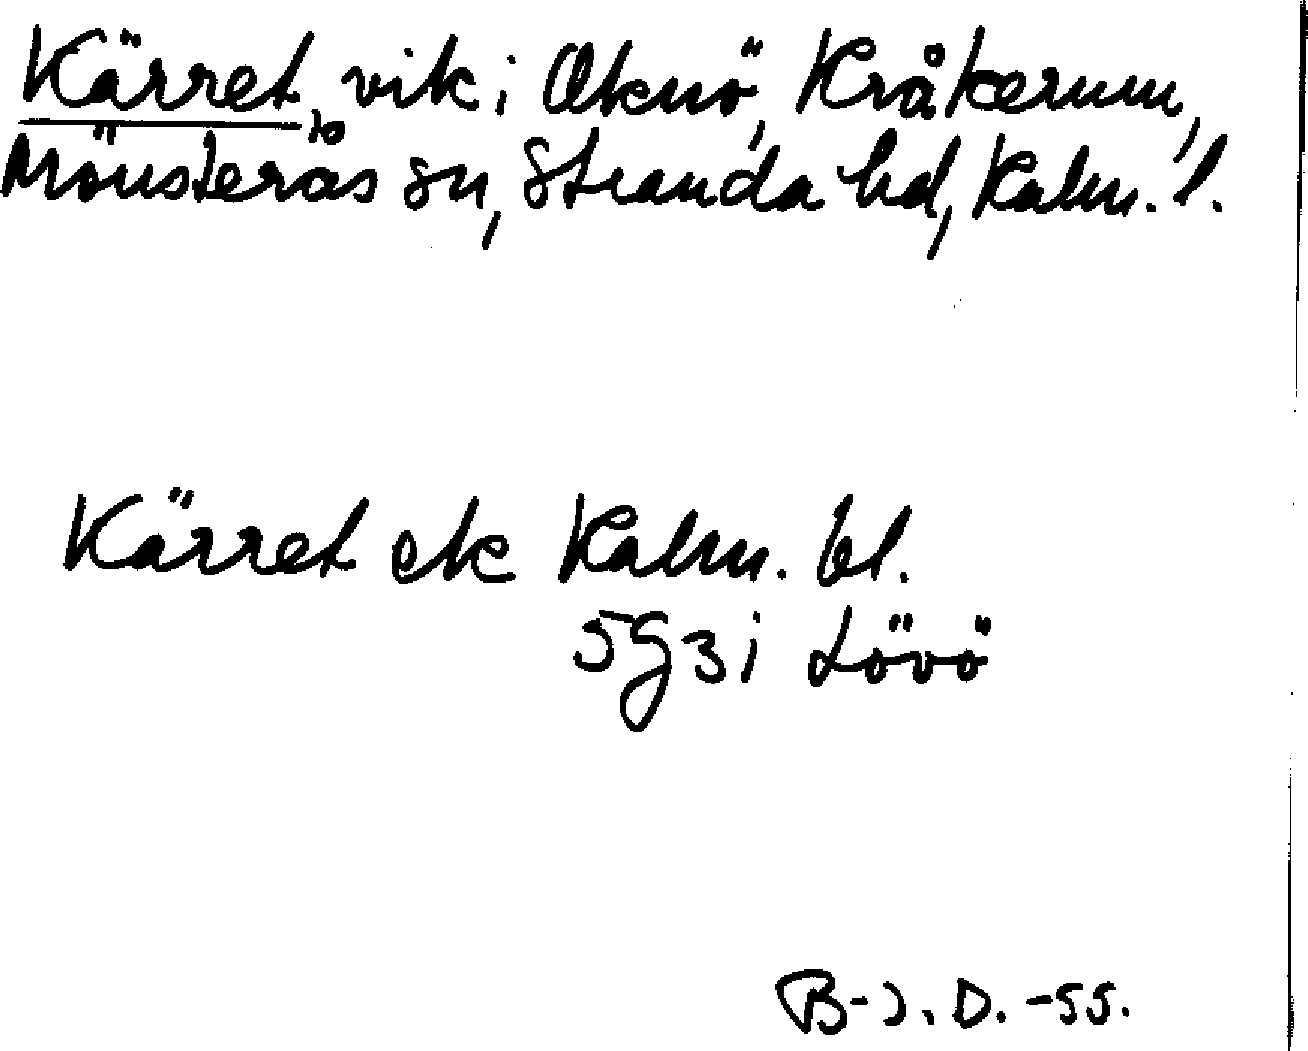 Kärret, vik i Oknö, Kråkerum,
Mönsterås sn, Stranda hd, Kalm. l.
Kärret ek Kalm. bl.
5g3i Lövö
B-J. D. -55.